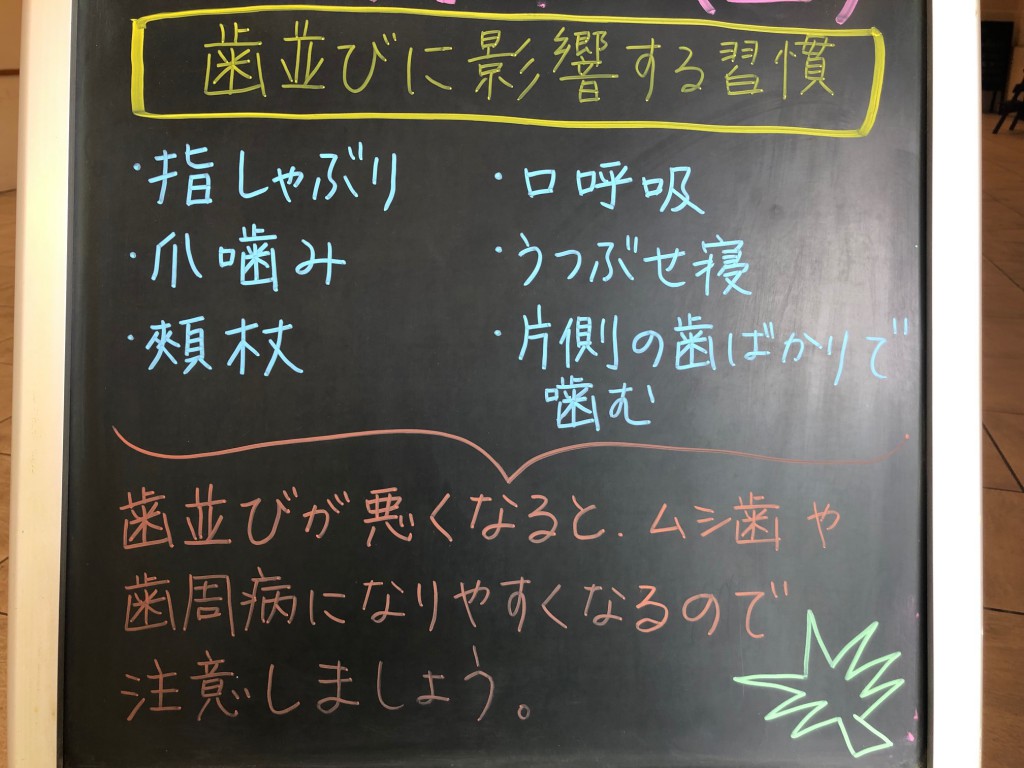 歯並びに影響する習慣
・指しゃぶり
・爪噛み
・頬杖
・口呼吸
・うつぶせ寝
・片側の歯ばかりで
噛む
歯並びが悪くなると、ムシ歯や
歯周病になりやすくなるので
注意しましょう。